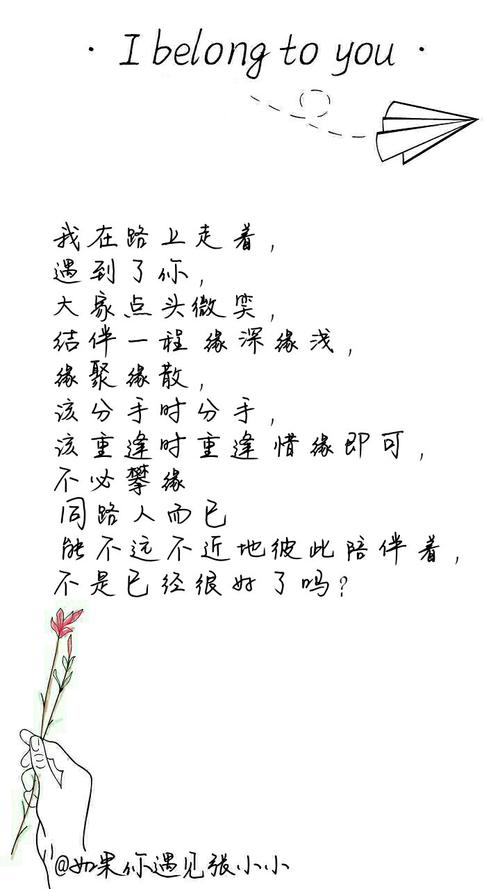 · I belong to you ·
我在路上走着，
遇到了你，
大家点头微笑，
结伴一程缘深缘浅，
缘聚缘散，
该分手时分手，
该重逢时重逢惜缘即可，
不必攀缘
同路人而已
能不远不近地彼此陪伴着，
不是已经很好了吗？
@如果你遇见张小小